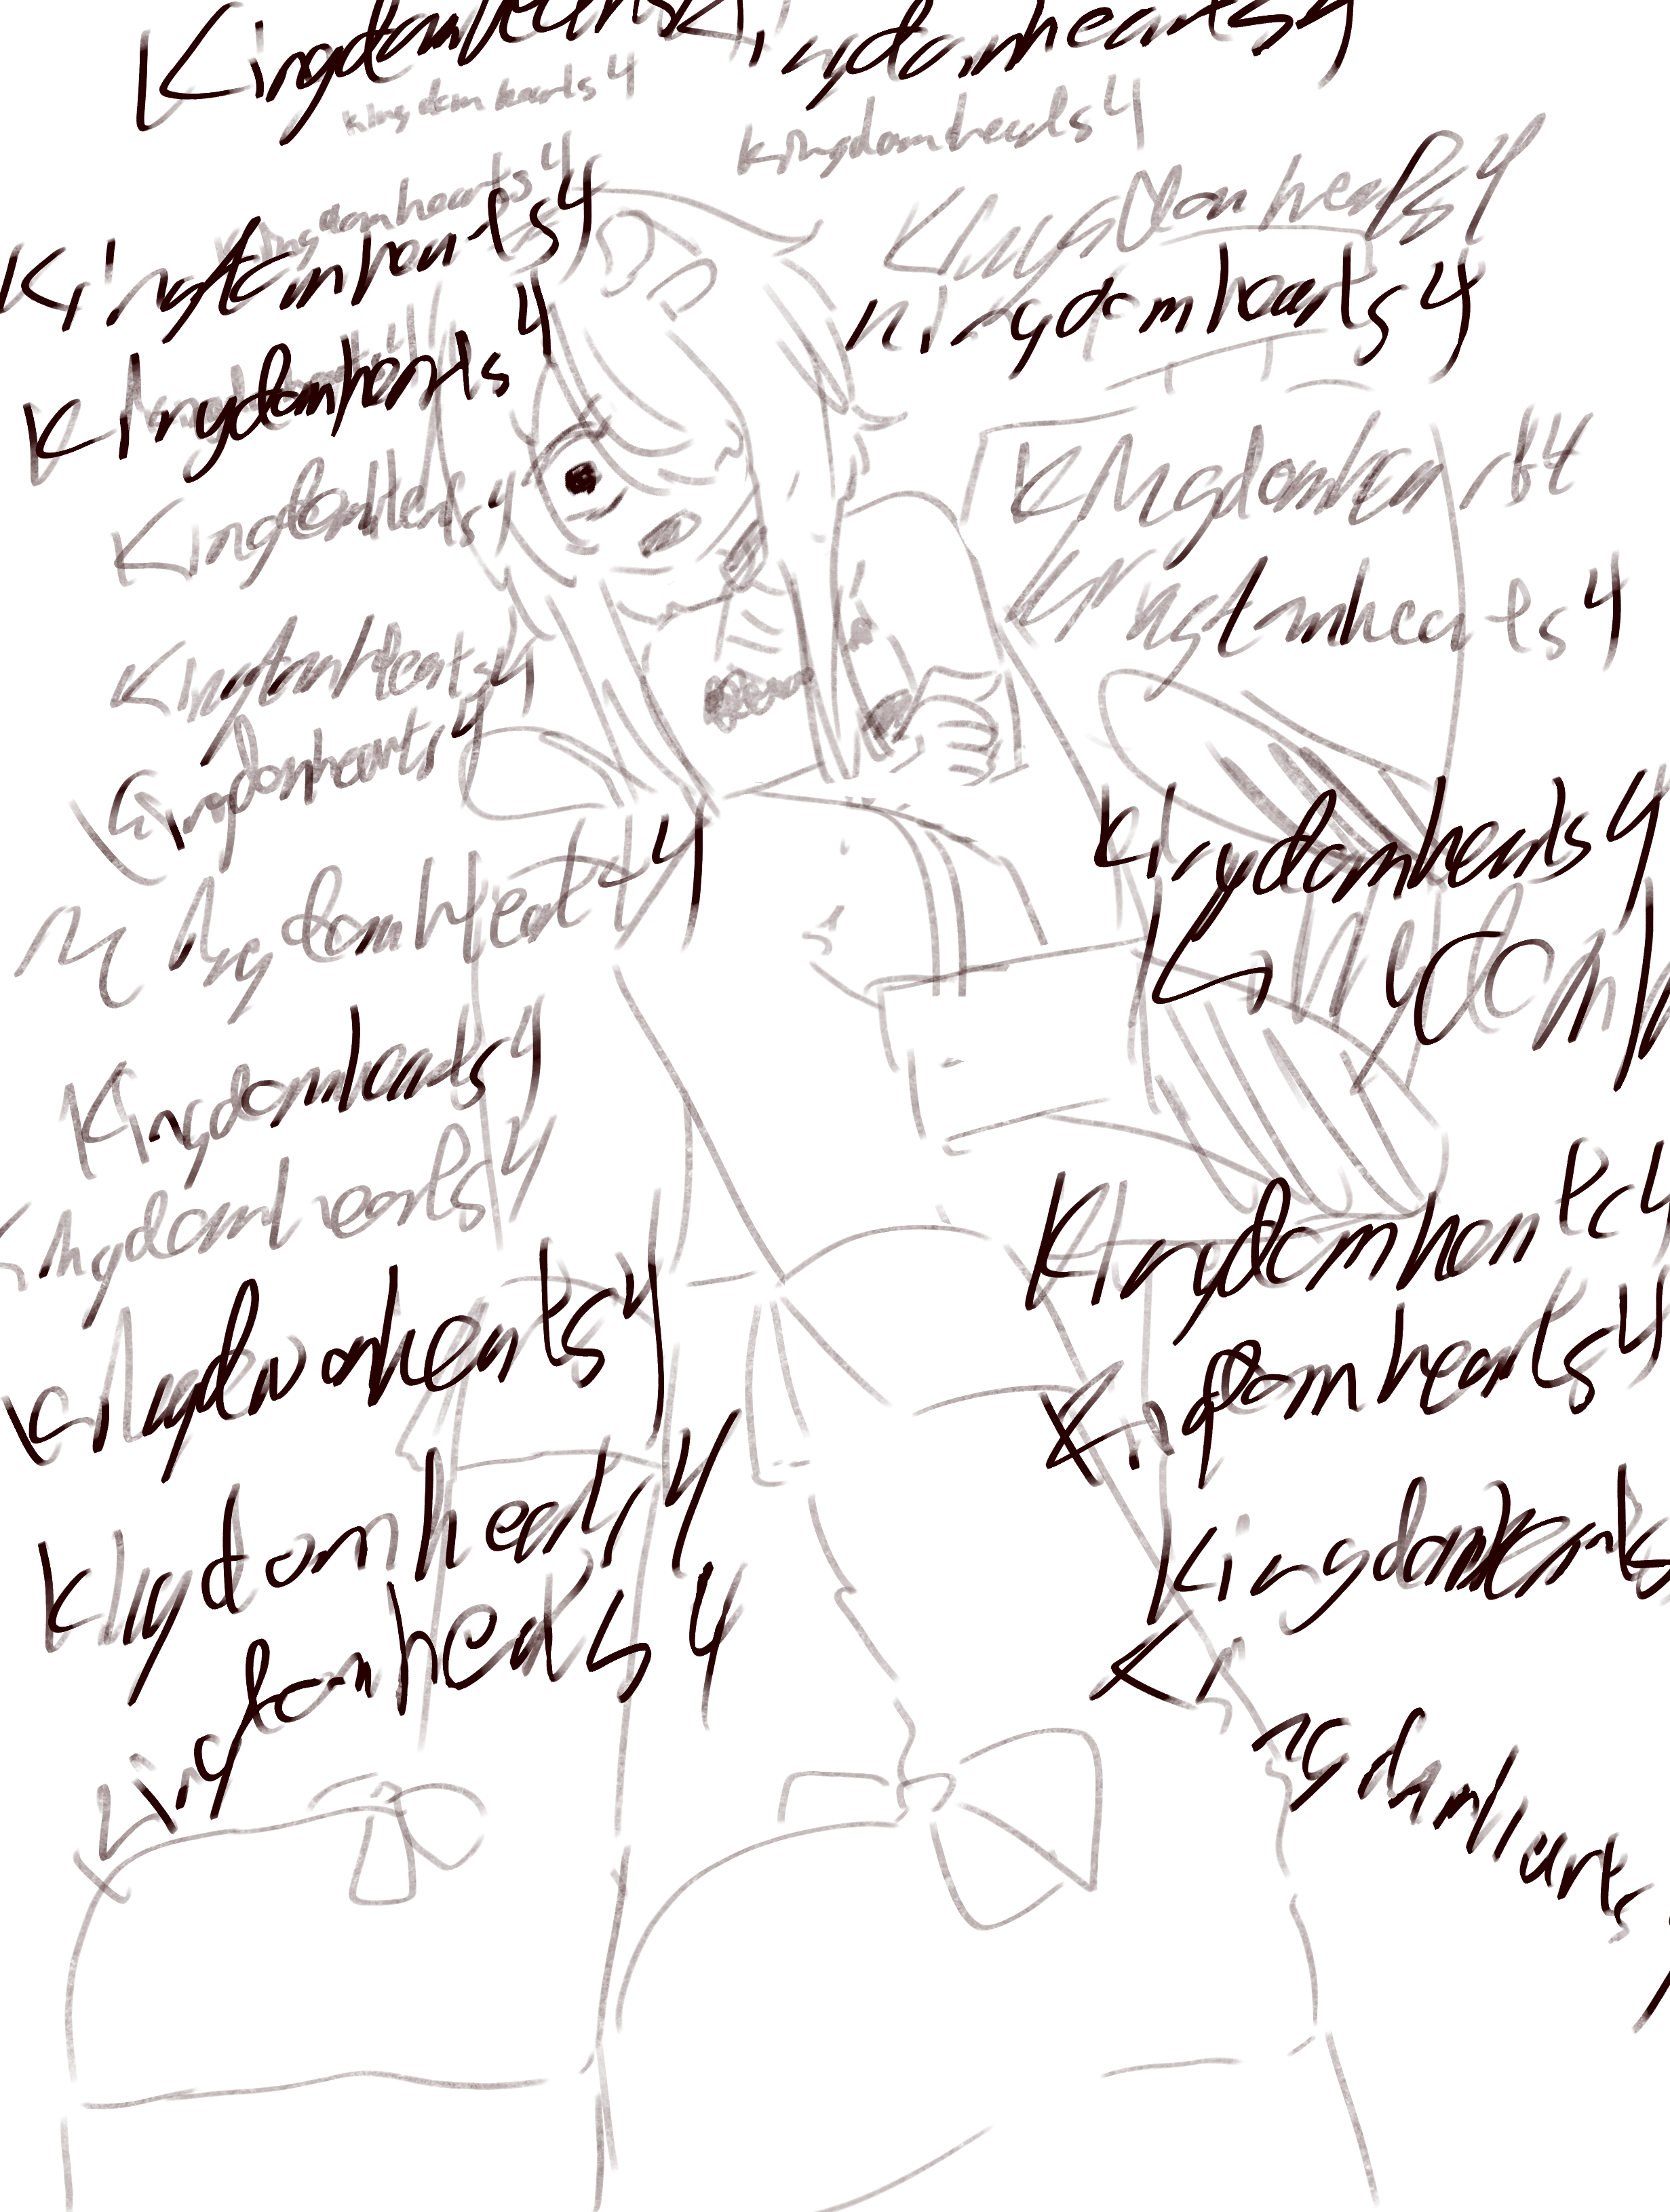 Kingdomhearts Kingdomhearts4
Kingdomhearts4
Kingdomhearts4
Kingdomhearts4
Kingdomhearts4
Kingdomhearts4
Kingdomhearts4
Kingdomhearts4
Kingdomhearts4
Kingdomhearts4
Kingdomhearts4
KingdomHearts4
Kingdomhearts4
Kingdomhearts4
Kingdomhearts4
Kingdom
KingdomHeart4
Kingdomhearts4
Kingdomhearts4
Kingdomhearts4
Kingdomhearts4
Kingdomhearts4
Kingdomhearts4
Kingdomhearts
Kingdomhearts4
Kingdomhearts